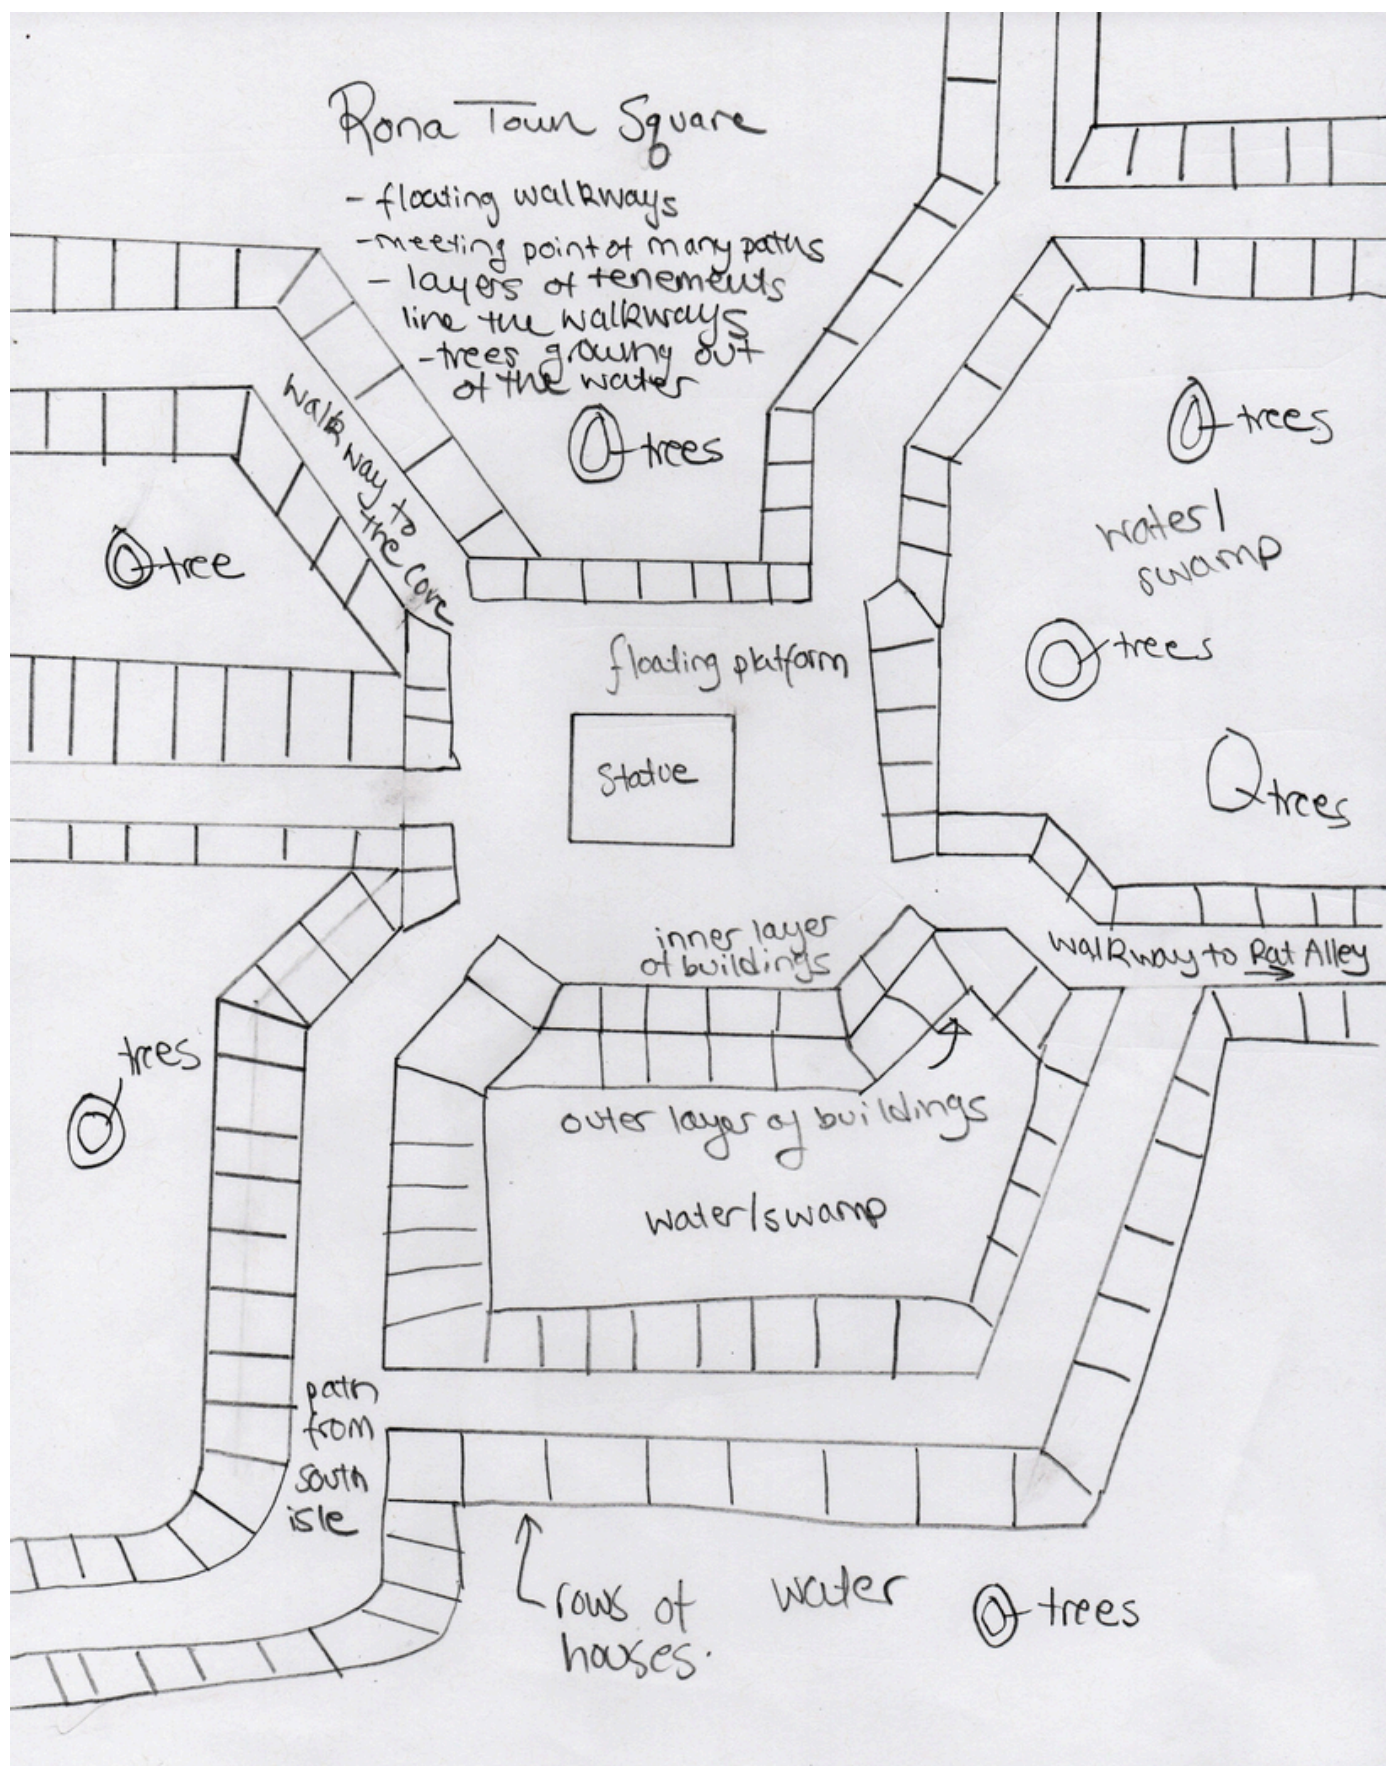 Rona Town Square
- floating walkways
- meeting point of many paths
- layers of tenements
line the walkways
- trees growing out
of the water
walkway to
the cove
trees
trees
tree
water/
swamp
trees
floating platform
Statue
trees
inner layer
of buildings
walkway to Rat Alley
trees
outer layer of buildings
water/swamp
path
from
south
isle
rows of
houses.
water
trees